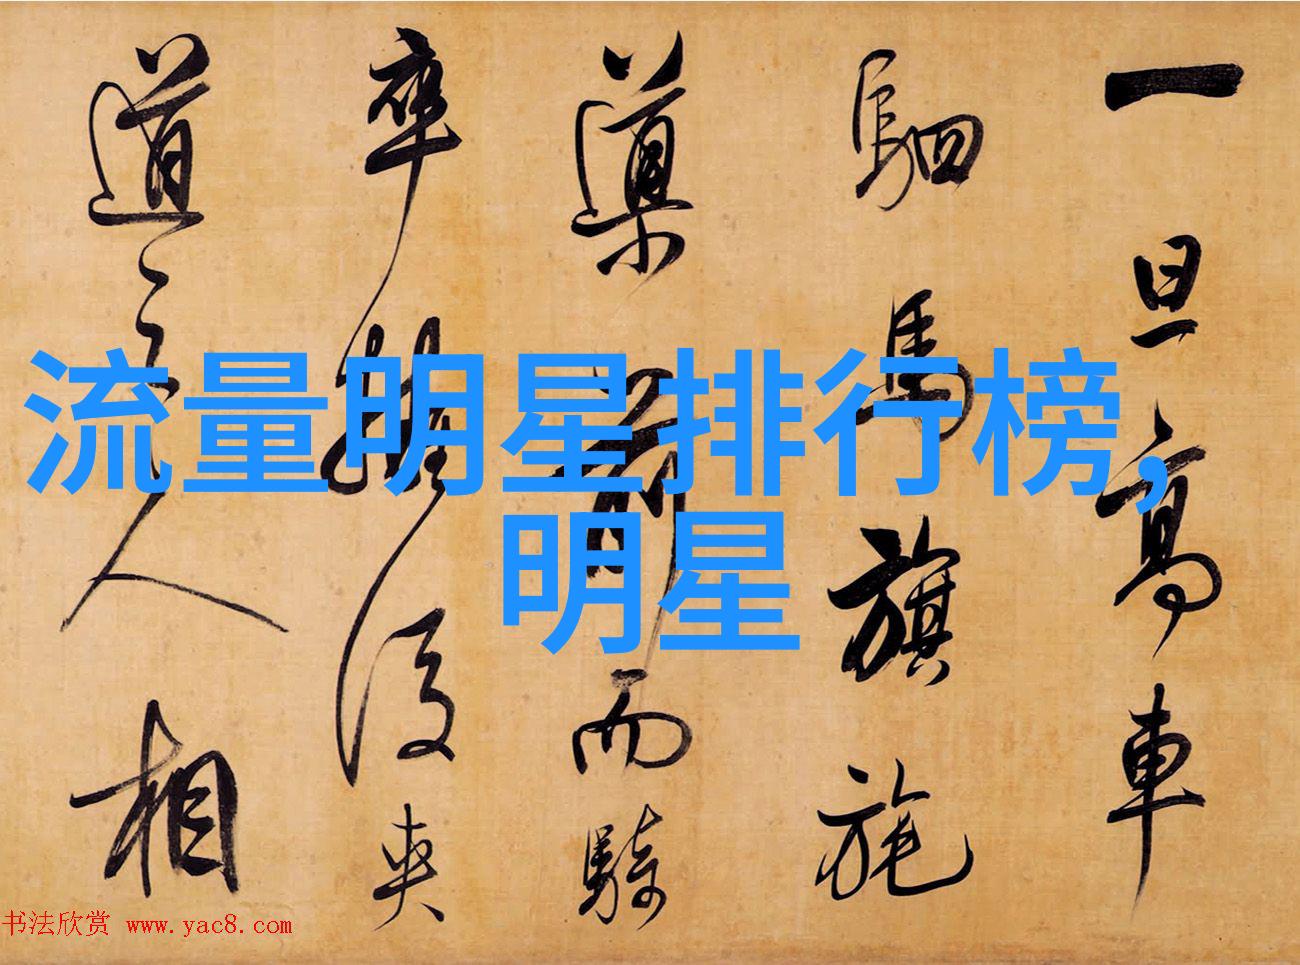 一旦高車
駟馬旗旄
導前而騎
卒擁後夾
道之人相
流量明星排行榜,
明星
书法欣赏 www.yac8.com